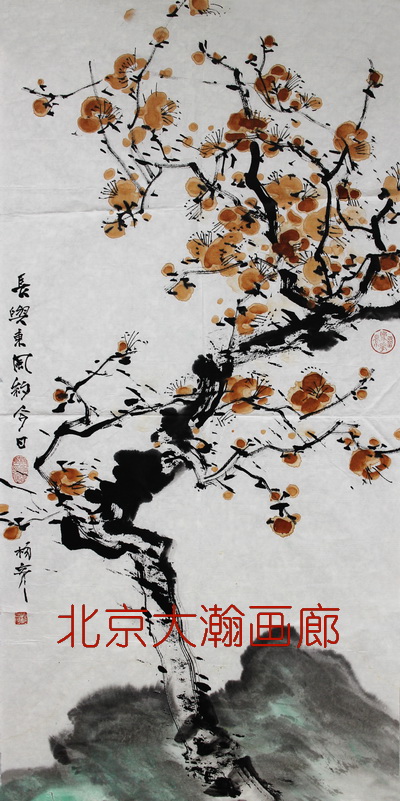 長與東風約今日
北京大瀚画廊